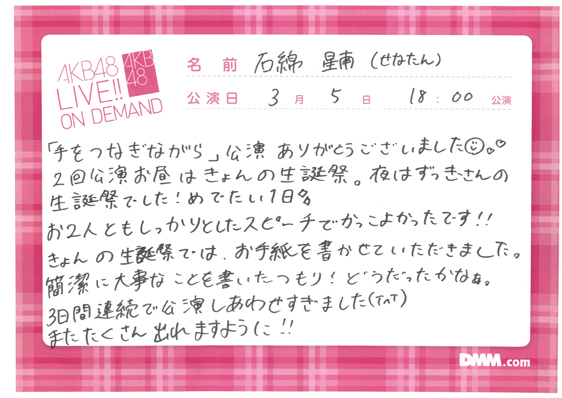 AKB48
LIVE!!
ON DEMAND
AKB
48
名前 石綿 星南 (せなたん)
公演日 3月 5日 18:00 公演
「手をつなぎながら」公演 ありがとうございました
2回公演お昼はきょんの生誕祭。夜はずっきーさんの
生誕祭でした!めでたい1日
お2人ともしっかりとしたスピーチでかっこよかったです!!
きょんの生誕祭では、お手紙を書かせていただきました。
簡潔に大事なことを書いたつもり!どうだったかなぁ。
3日間連続で公演しあわせすぎました(TnT)
またたくさん出れますように!!
DMM.com